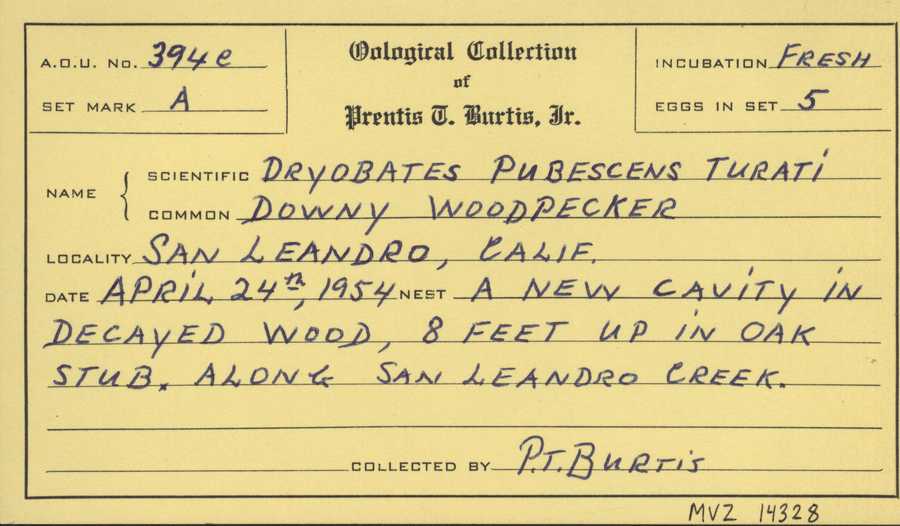 A.O.U. No. 394e
SET MARK A
Oological Collection
of
Prentis T. Burtis, Jr.
INCUBATION FRESH
EGGS IN SET 5
NAME { SCIENTIFIC DRYOBATES PUBESCENS TURATI
COMMON DOWNY WOODPECKER
LOCALITY SAN LEANDRO, CALIF.
DATE APRIL 24th, 1954 NEST A NEW CAVITY IN
DECAYED WOOD, 8 FEET UP IN OAK
STUB. ALONG SAN LEANDRO CREEK.
COLLECTED BY P.T. BURTIS
MVZ 14328